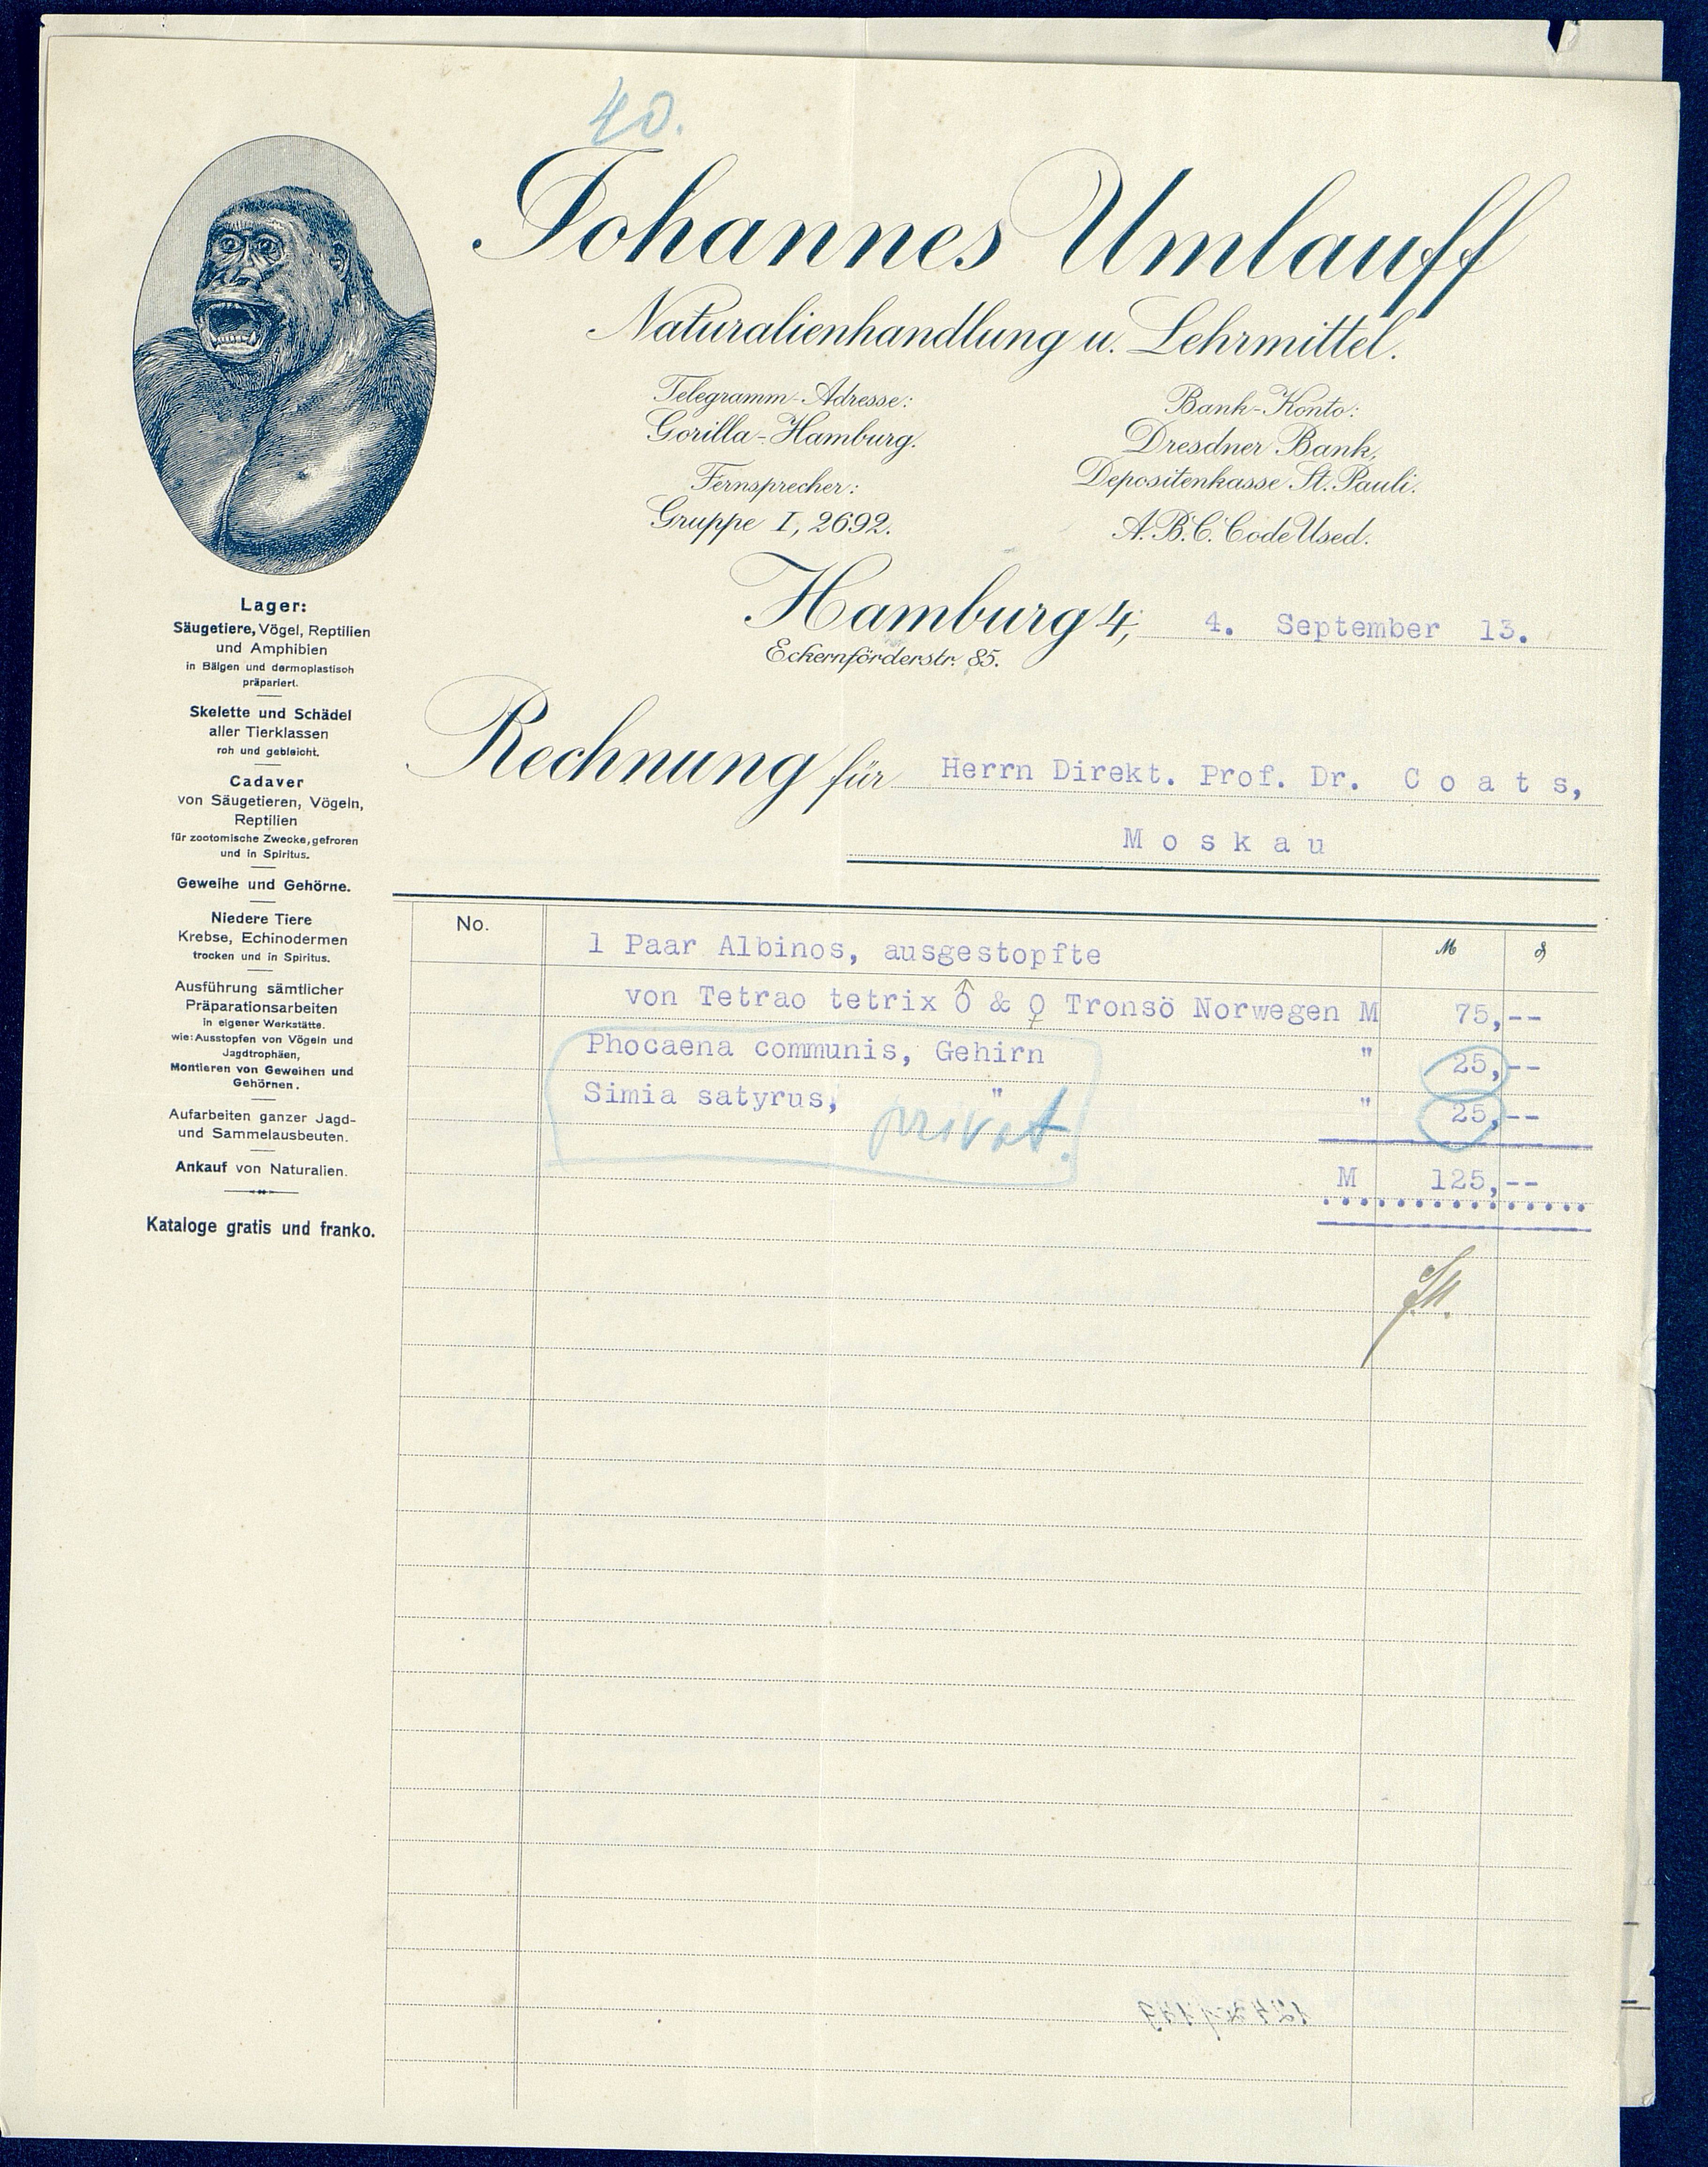 40.
Johannes Umlauff
Naturalienhandlung u. Lehrmittel.
Telegramm-Adresse:
Gorilla-Hamburg.
Fernsprecher:
Gruppe I, 2692.
Bank-Konto:
Dresdner Bank,
Depositenkasse St. Pauli.
A.B.C. Code Used.
Hamburg 4, 4. September 13.
Eckernförderstr. 85.
Lager:
Säugetiere, Vögel, Reptilien
und Amphibien
in Bälgen und dermoplastisch
präpariert.
Skelette und Schädel
aller Tierklassen
roh und gebleicht.
Cadaver
von Säugetieren, Vögeln,
Reptilien
für zootomische Zwecke, gefroren
und in Spiritus.
Geweihe und Gehörne.
Niedere Tiere
Krebse, Echinodermen
trocken und in Spiritus.
Ausführung sämtlicher
Präparationsarbeiten
in eigener Werkstätte.
wie: Ausstopfen von Vögeln und
Jagdtrophäen,
Montieren von Geweihen und
Gehörnen.
Aufarbeiten ganzer Jagd-
und Sammelausbeuten.
Ankauf von Naturalien.
Kataloge gratis und franko.
Rechnung für Herrn Direkt. Prof. Dr. C o a t s,
M o s k a u
No. M ₰
1 Paar Albinos, ausgestopfte
von Tetrao tetrix ♂ & ♀ Tronsö Norwegen M 75,--
Phocaena communis, Gehirn " 25,--
Simia satyrus, " " 25,--
privat.
M 125,--